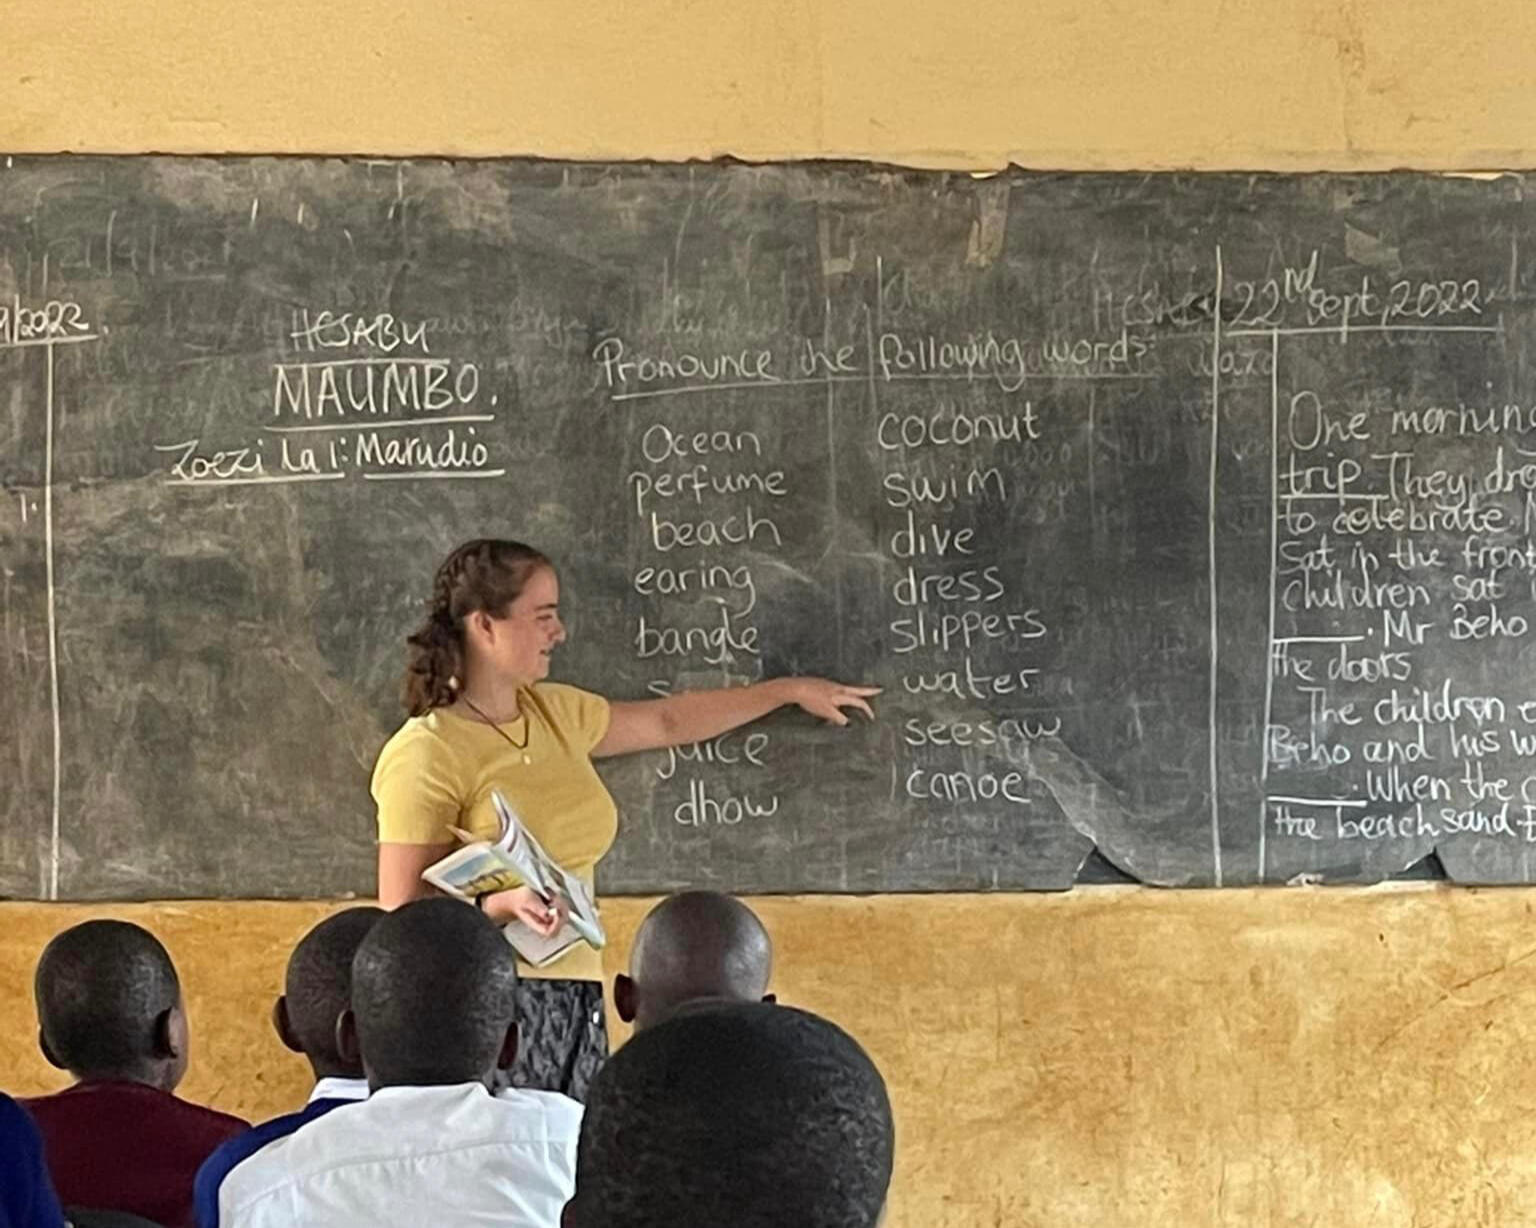 9/2022.
1.
HESABU
MAUMBO.
Zoezi la 1: Marudio
Pronounce the following words:
Ocean
perfume
beach
earing
bangle
juice
dhow
coconut
swim
dive
dress
slippers
water
seesaw
canoe
22nd Sept, 2022
One morning
trip. They
to celebrate
Sat in the front
children sat
______. Mr Beho
the doors
The children
Beho and his
______. When the
the beach sand.